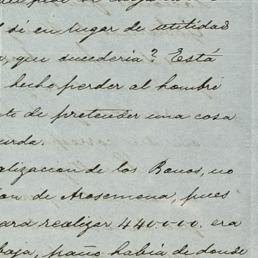 l si en lugar de utilidad
, que sucederia? Está
hecho perder al hombre
to de pretender una cosa
urda.
alizacion de los Bonos, no
ion de Arosemena, pues
para realizar 440.000. era
baja, pues no había de donde